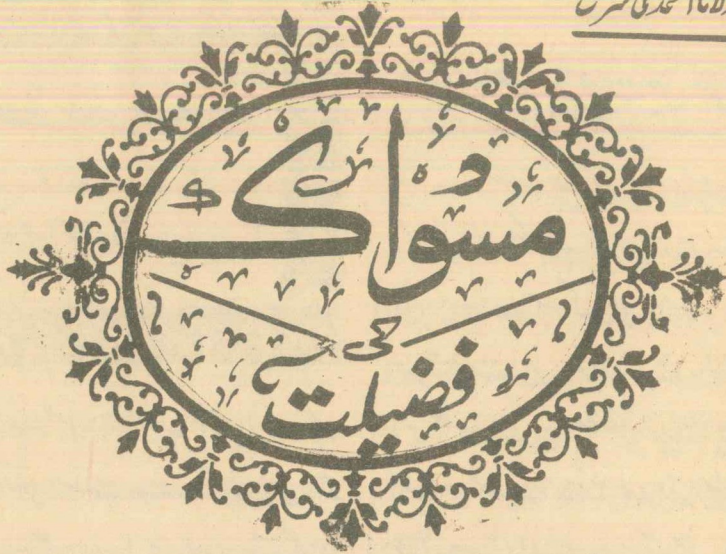 مسواک
کی
فضیلت